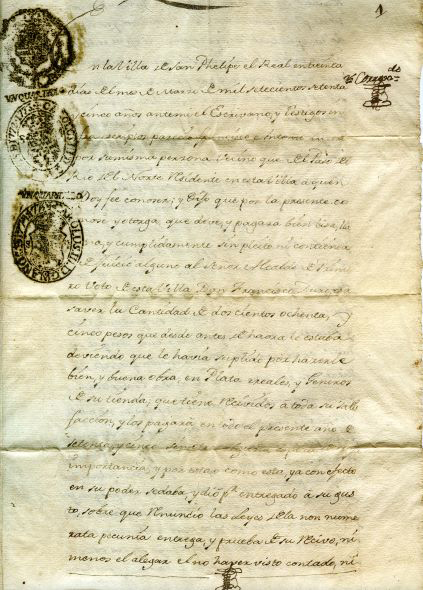 1
n la Villa de San Phelipe el Real en treinta
dias del mes de Marzo de mil setecientos setenta
y cinco años antemi el Escrivano, y testigos
por su misma persona Vecino que del Paso del
Rio del Norte Residente en esta Villa a quien
Doy fee conosco; y Dijo que por la presente co
nose, y otorga, que deve, y pagará bien y lla
na, y cumplidamente sin pleito ni contienda
de Juicio alguno al Señor Alcalde de Prime
ro Voto de esta Villa Don Francisco
saver la Cantidad de dos cientos ochenta, y
cinco pesos que desde antes de haora le estaba
deviendo que le havia suplido por hazerle
bien, y buena obra, en Plata reales, y Generos
de su tienda, que tiene Recividos a toda su satis
faccion, y los pagará en todo el presente año de
setenta, y cinco
importancia, y por estar como esta, ya con efecto
en su poder se daba, y dió pr. entregado á su gus
to, sobre que Renunció las Leyes de la non nume
rata pecunia entrega, y prueba de su Recivo, ni
menos el alegar el no haver visto contado, ni